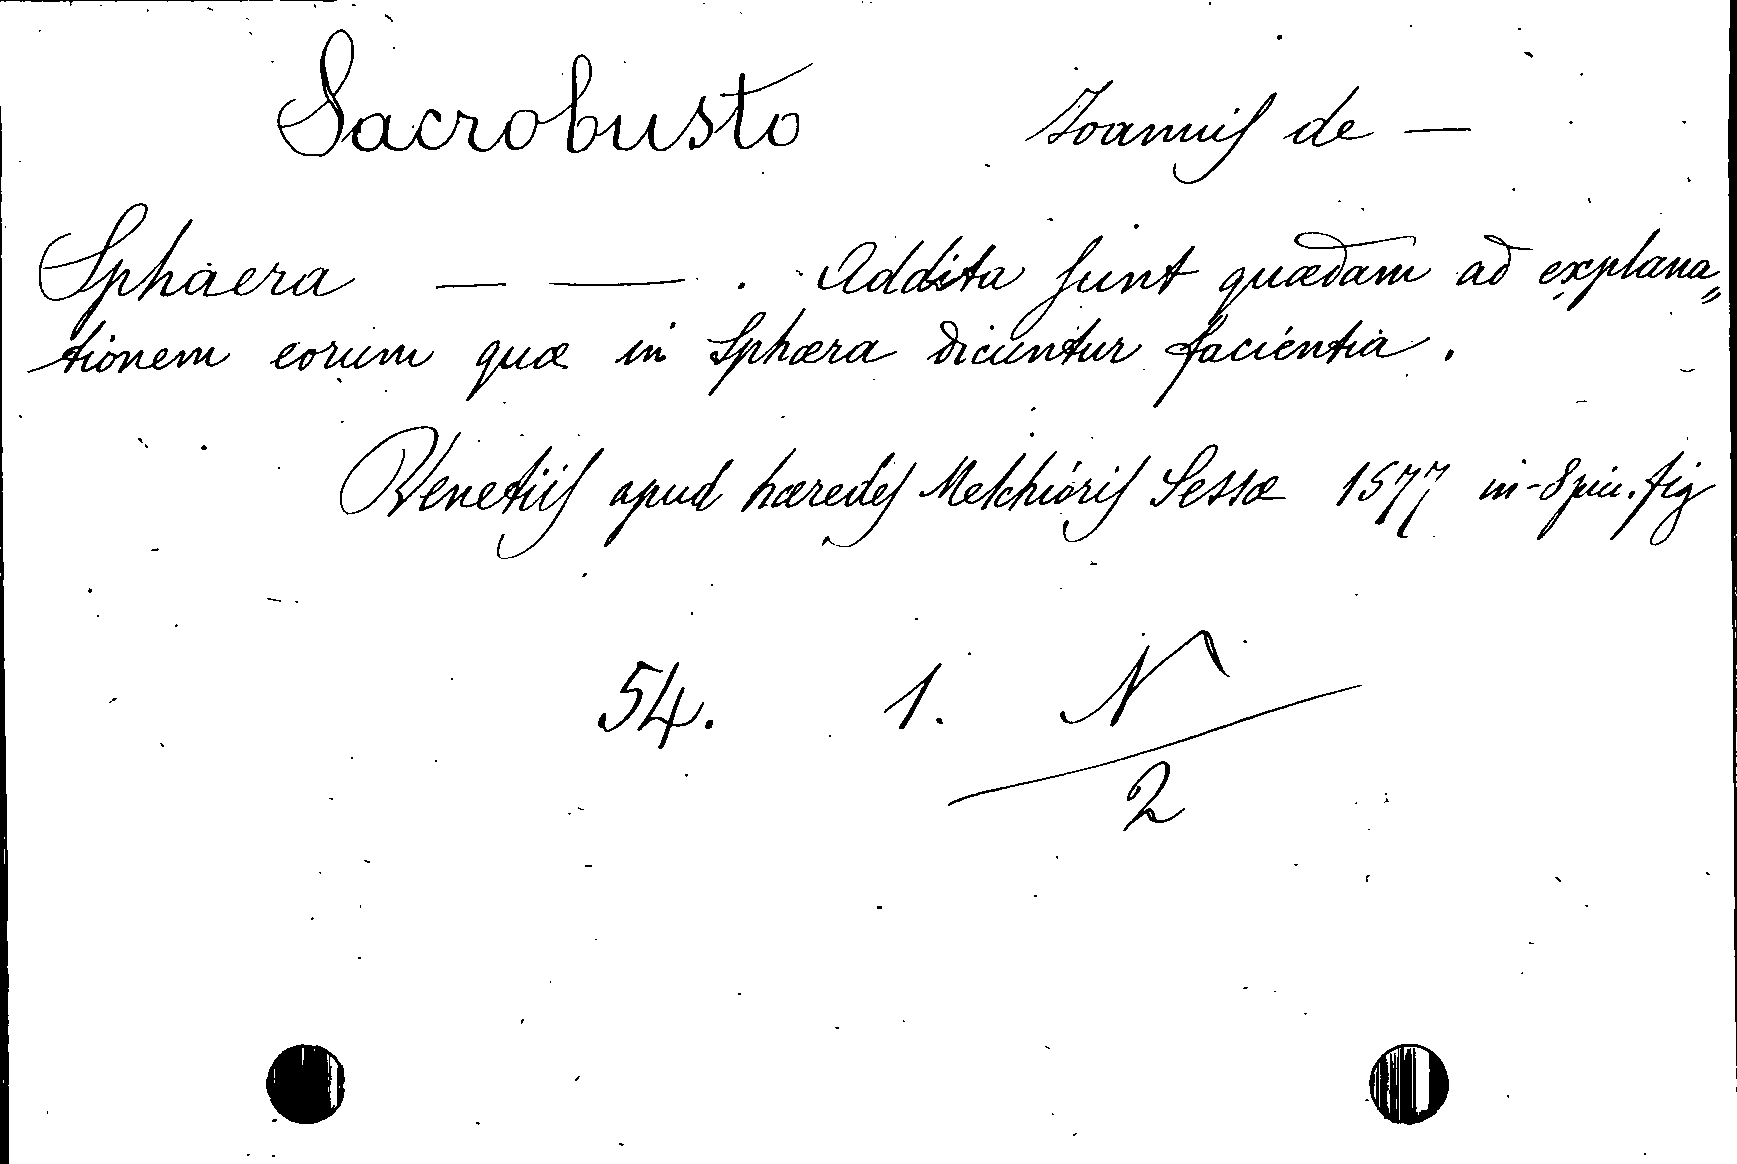 Sacrobusto Joannis de —
Sphaera — — . Addita sunt quædam ad explana„
tionem eorum quæ in Sphæra dicuntur facientia.
Venetiis apud hæredes Melchioris Sessæ 1577 in-8 picc. fig
54. 1. N
2